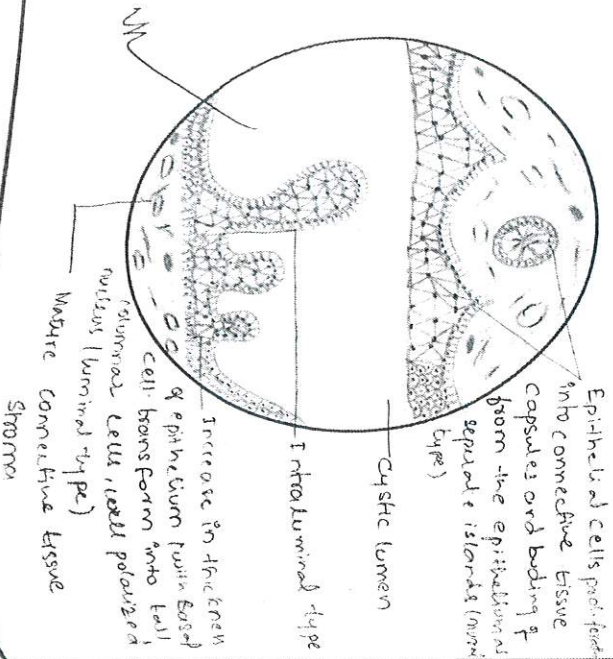 Epithelial cells proliferate
into connective tissue
capsules and buding of
from the epithelium as
seperate islands (mural
type)
Cystic lumen
Intraluminal type
Increase in thickness
of epithelium (with Basal
cell transform into tall
columnar cells, well polarized
nucleus (luminal type)
Mature connective tissue
Stroma